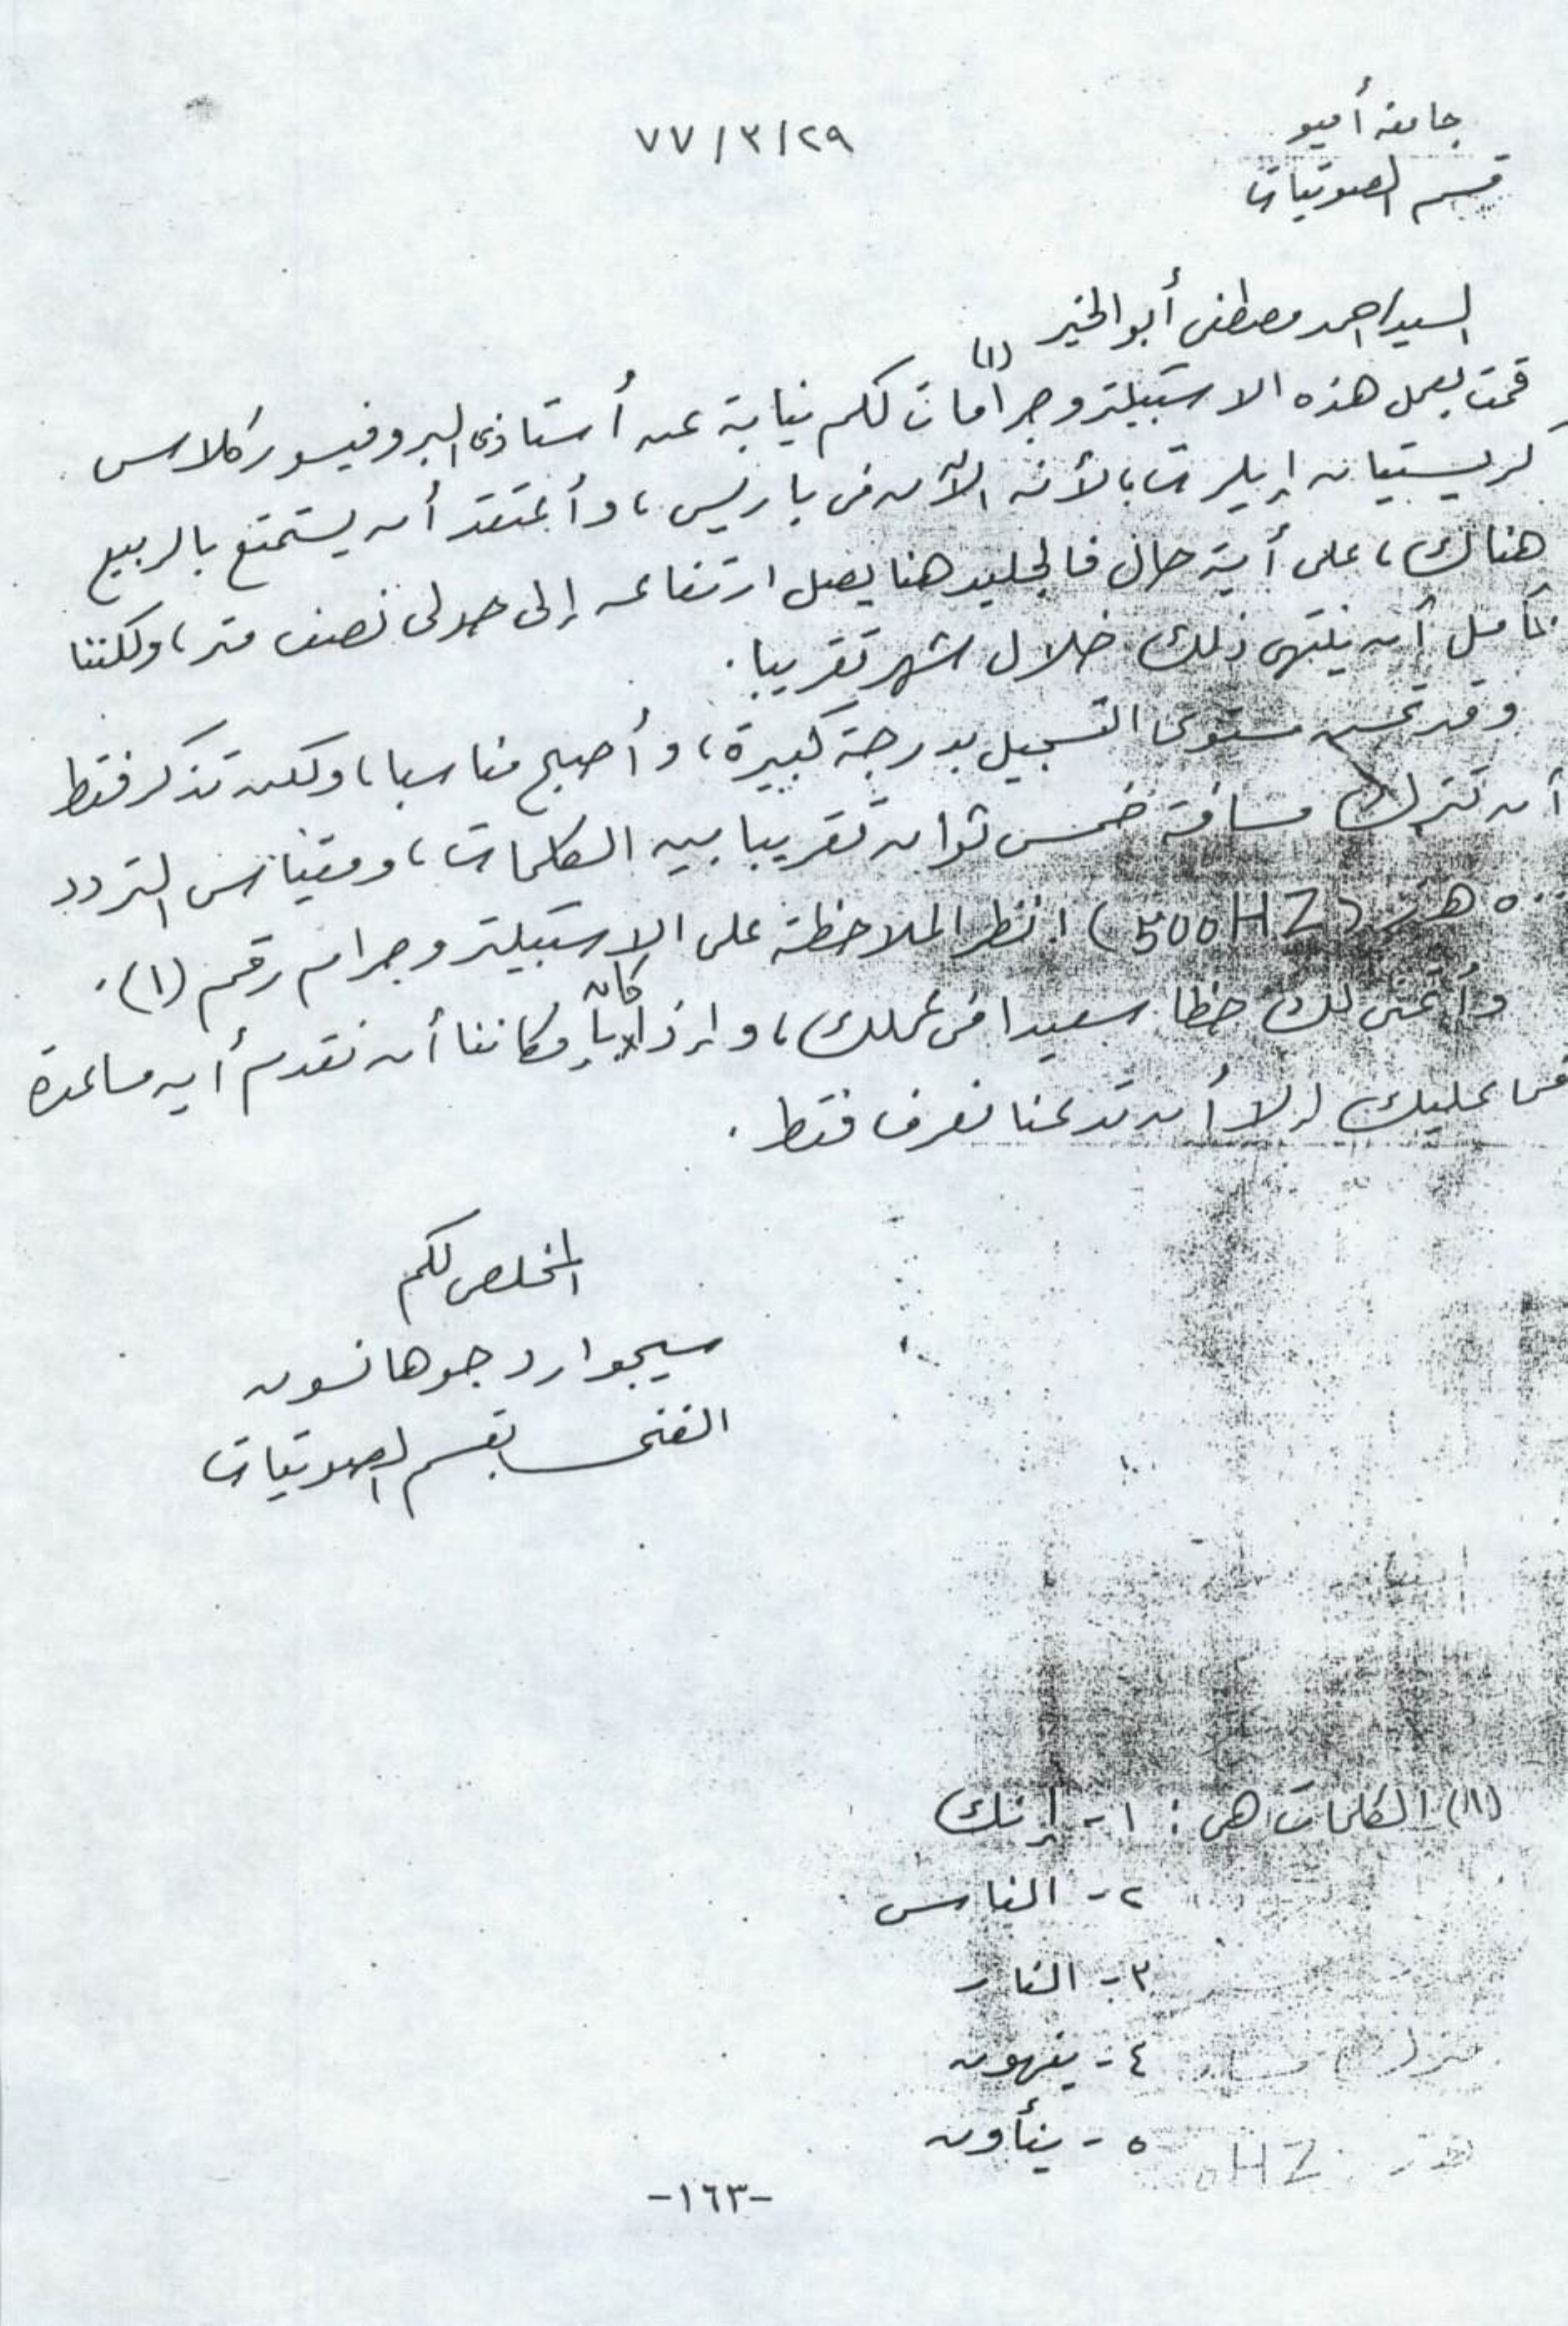 جامعة أميو
٧٧/٣/٢٩
قسم الصوتيات
السيد/احمد مصطفى أبو الخير
قمت بعمل هذه الاسبيلتروجرامات (١) لكم نيابة عن أستاذى البروفيسور كلاس
كريستيان إيلرت، لأنه الآن فى باريس، وأعتقد أن يستمتع بالربيع
هناك، على أية حال فالجليد هنا يصل ارتفاعه إلى حولى نصف متر، ولكننا
نأمل أن ينتهى ذلك خلال شهر تقريبا.
وقد تحسن مستوى التسجيل بدرجة كبيرة، وأصبح مناسبا، ولكن تذكر فقط
أن تترك مسافة خمس ثوان تقريبا بين الكلمات، ومقياس التردد
هرتز (500HZ) انظر الملاحظة على الاسبيلتروجرام رقم (١).
وأتمنى لك حظا سعيدا فى عملك، وإذا كان بإمكاننا أن نقدم أيه مساعدة
فما عليك إلا أن تدعنا نعرف فقط.
المخلص لكم
سيجوارد جوهانسون
الفنى بقسم الصوتيات
(١) الكلمات هى : ١- إنك
٢- الناس
٣- النار
٤- ينهون
٥- ينأون
-١٦٣-